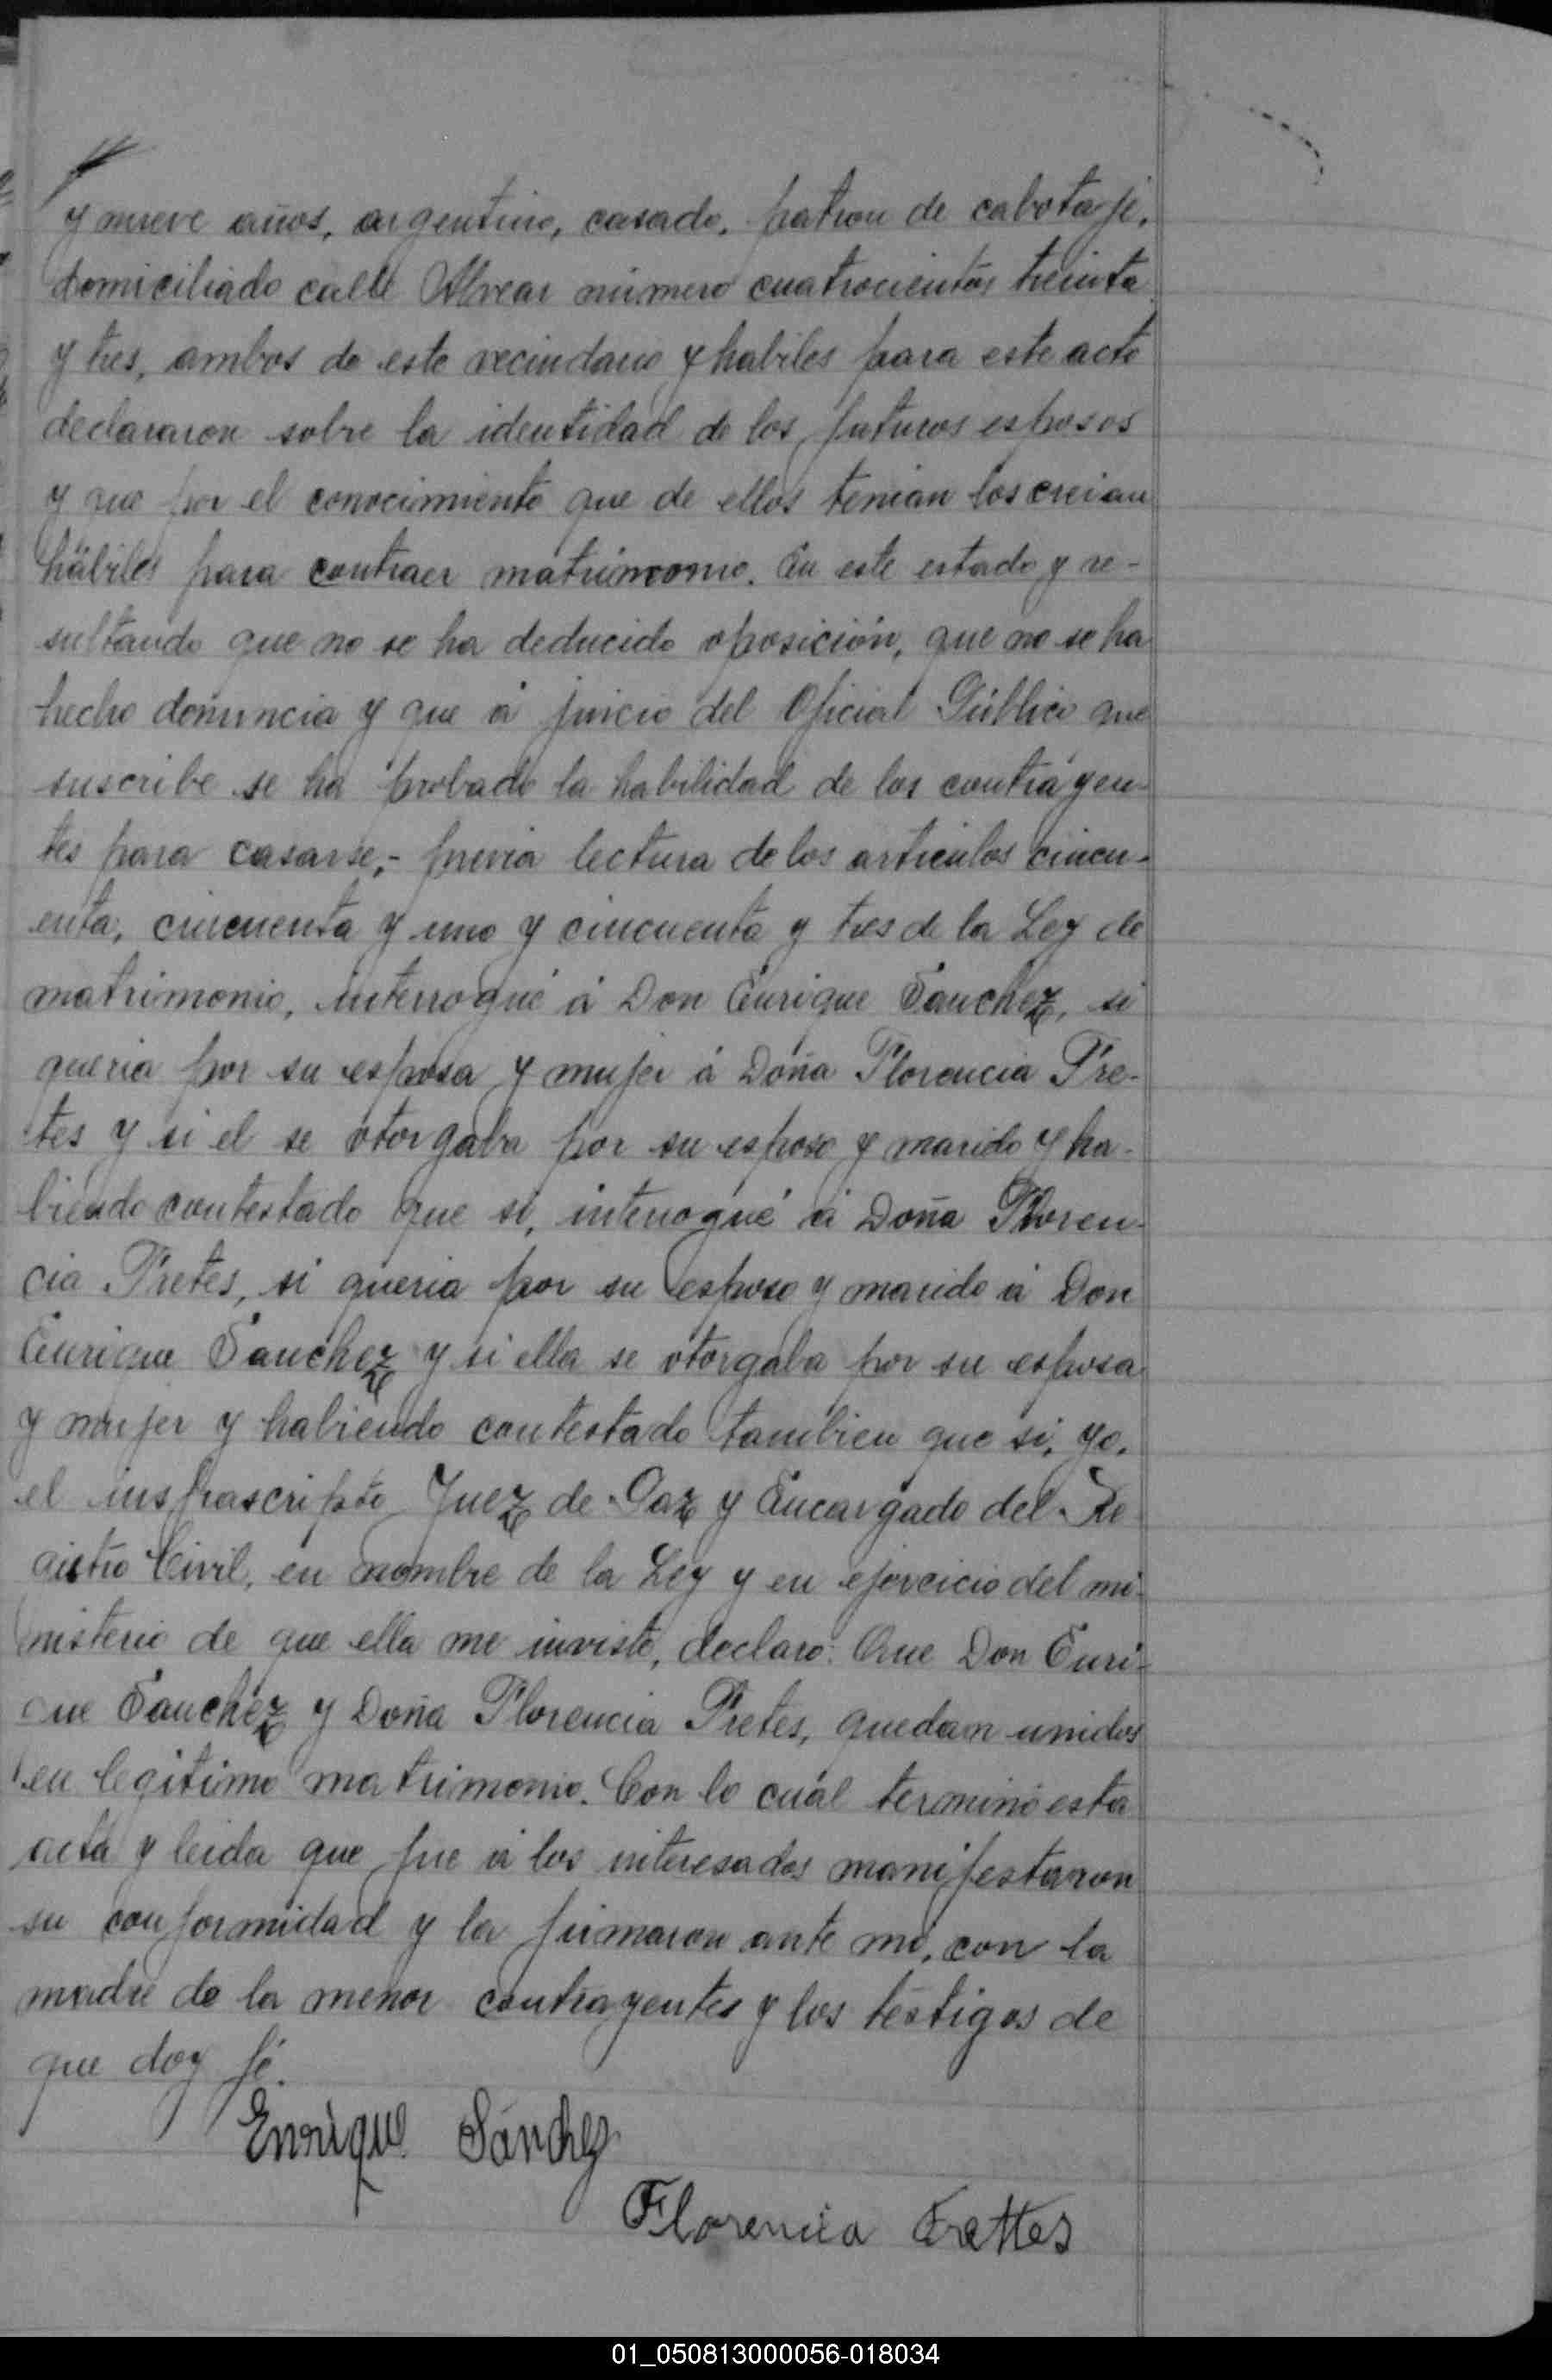 y nueve años, argentino, casado, patron de cabotaje,
domiciliado calle Alvear número cuatrocientos treinta
y tres, ambos de este vecindario y habiles para este acto
declararon sobre la identidad de los futuros esposos
y que por el conocimiento que de ellos tenian los creian
hábiles para contraer matrimonio. En este estado y re-
sultando que no se ha deducido oposición, que no se ha
hecho denuncia y que á juicio del Oficial Público que
suscribe se ha probado la habilidad de los contrayen-
tes para casarse,- previa lectura de los articulos cincu-
enta, cincuenta y uno y cincuenta y tres de la Ley de
matrimonio, interrogué á Don Enrique Sanchez, si
queria por su esposa y mujer á Doña Florencia Fre-
tes y si el se otorgaba por su esposo y marido y ha-
biendo contestado que si, interrogué á Doña Floren-
cia Fretes, si queria por su esposo y marido á Don
Enrique Sanchez y si ella se otorgaba por su esposa
y mujer y habiendo contestado tambien que si, yo,
el infrascripto Juez de Paz y Encargado del Re
gistro Civil, en nombre de la Ley y en ejercicio del mi-
nisterio de que ella me inviste, declaro: Que Don Enri-
que Sanchez y Doña Florencia Fretes, quedan unidos
en legitimo matrimonio. Con lo cuál terminó esta
acta y leida que fue á los interesados manifestaron
su conformidad y la firmaron ante mi, con la
madre de la menor contrayentes y los testigos de
que doy fé.
Enrique Sánchez
Florencia Frettes
01_050813000056-018034